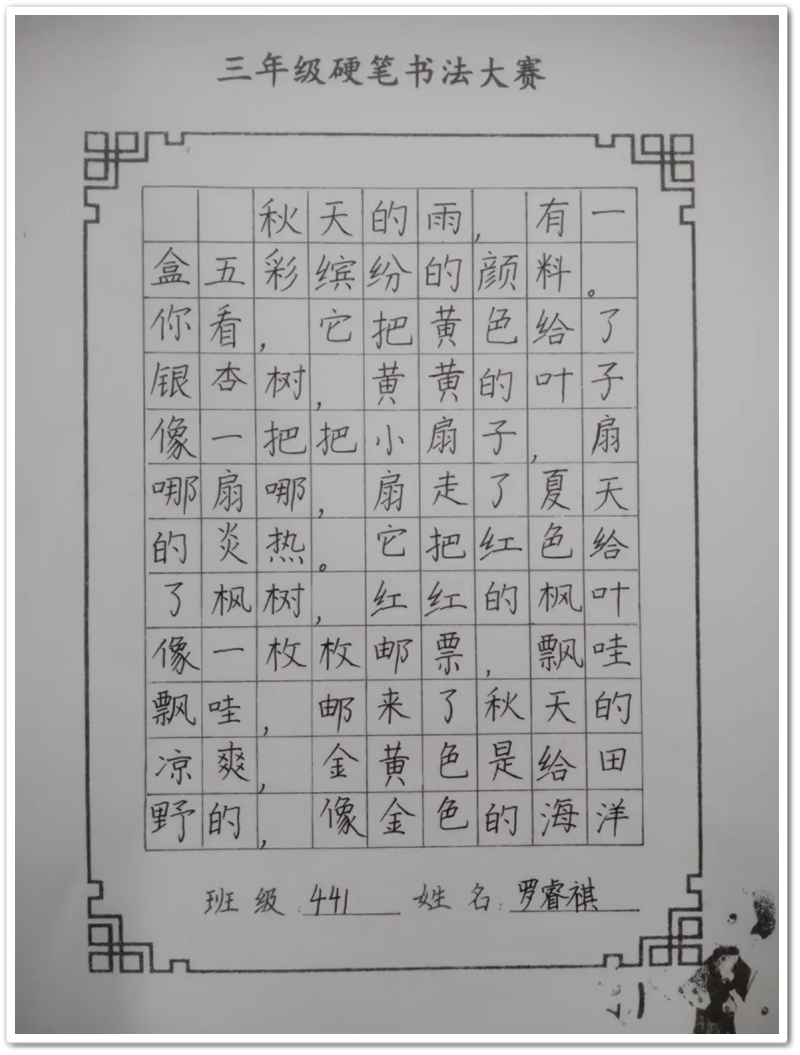 三年级硬笔书法大赛
秋天的雨,有一
盒五彩缤纷的颜料。
你看,它把黄色给了
银杏树,黄黄的叶子
像一把把小扇子,扇
哪扇哪,扇走了夏天
的炎热。它把红色给
了枫树,红红的枫叶
像一枚枚邮票,飘哇
飘哇,邮来了秋天的
凉爽,金黄色是给田
野的,像金色的海洋
班级:441 姓名:罗睿祺